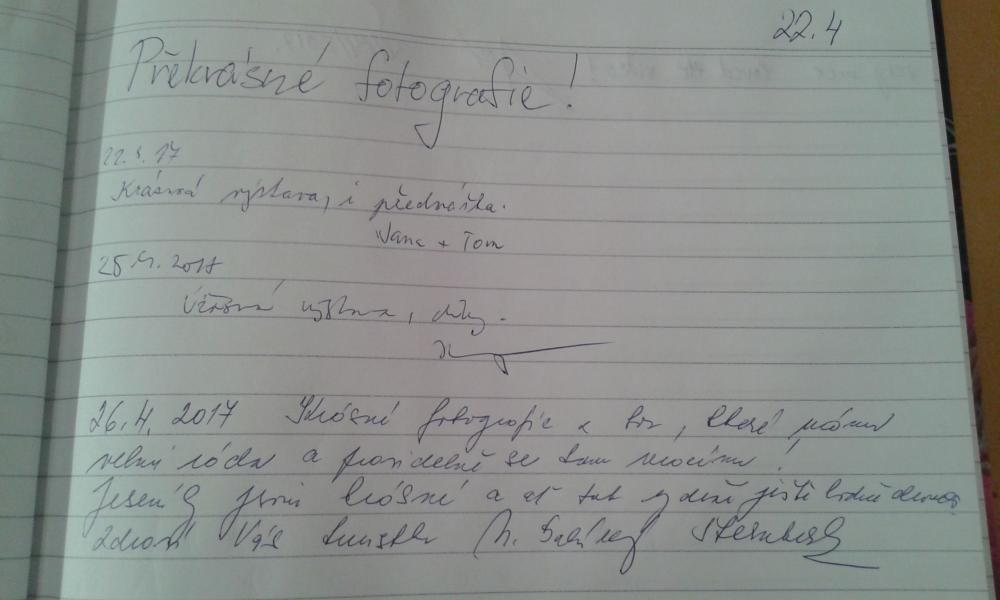 22.4
Překrásné fotografie!
22.4.17
Krásná výstava, i přednáška.
Jana + Tom
25.4.2017
Úžasná výstava, díky.
26.4.2017 Krásné fotografie z hor, které máme
velmi ráda a pravidelně se tam vracíme!
Jeseníky jsou krásné a ať tak vydrží ještě hodně dlouho
Zdraví Vás turistka M. Šternberk